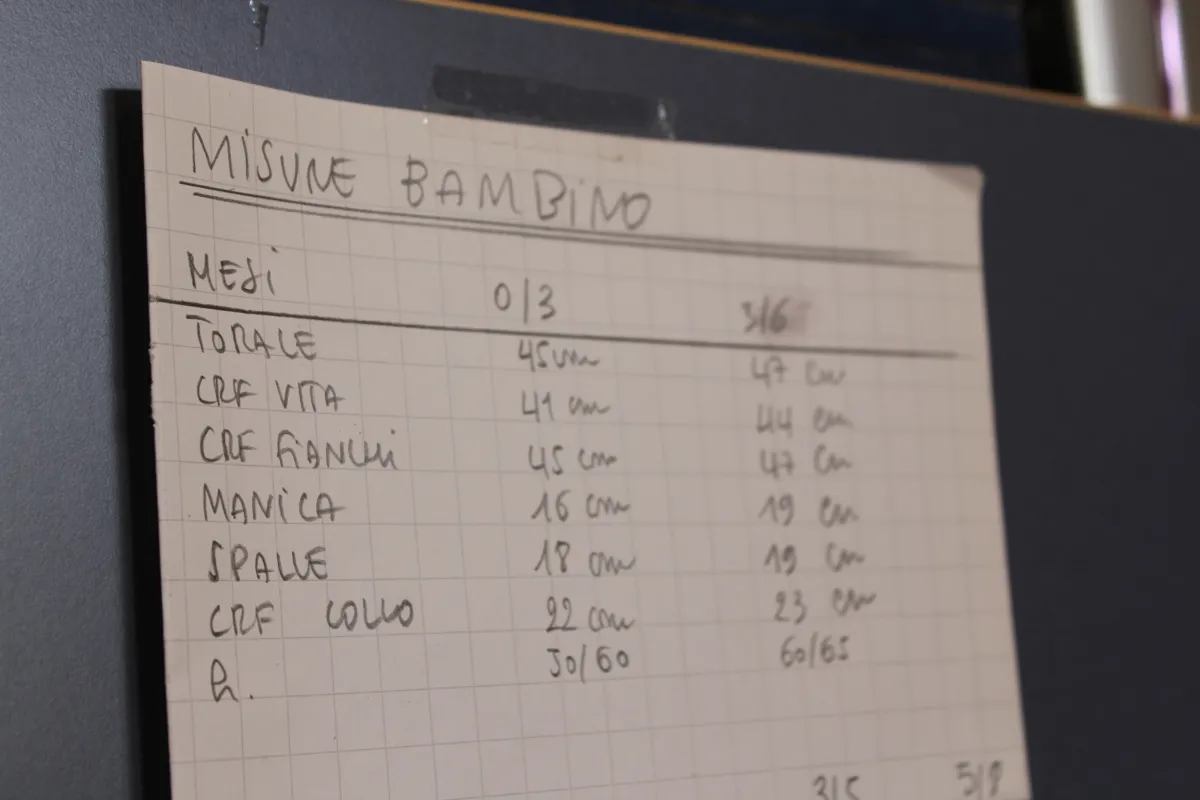 MISURE BAMBINO
MESI 0/3 3/6
TORALE 45 cm 47 cm
CRF VITA 41 cm 44 cm
CRF FIANCHI 45 cm 47 cm
MANICA 16 cm 19 cm
SPALLE 18 cm 19 cm
CRF COLLO 22 cm 23 cm
h. 50/60 60/65
3/5